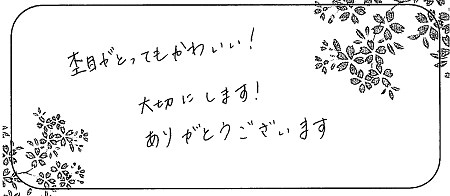 杢目がとってもかわいい!
大切にします!
ありがとうございます